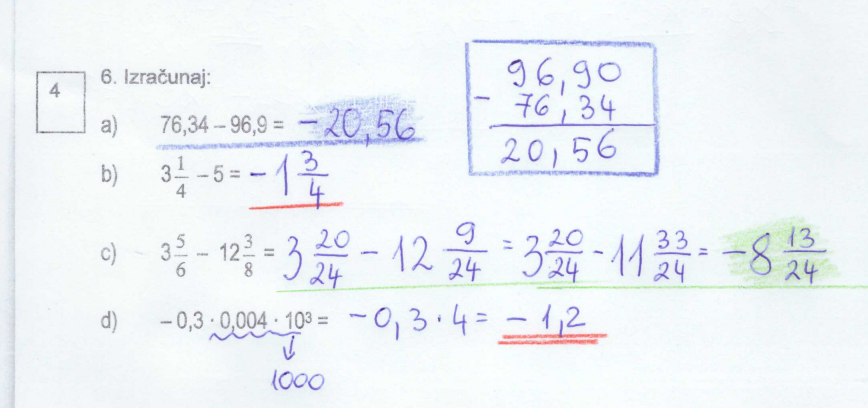 4
6. Izračunaj:
96,90
- 76,34
20,56
a) 76,34 – 96,9 = -20,56
b) 3 1/4 – 5 = -1 3/4
c) 3 5/6 – 12 3/8 = 3 20/24 - 12 9/24 = 3 20/24 - 11 33/24 = -8 13/24
d) – 0,3 · 0,004 · 10³ = -0,3 · 4 = -1,2
1000